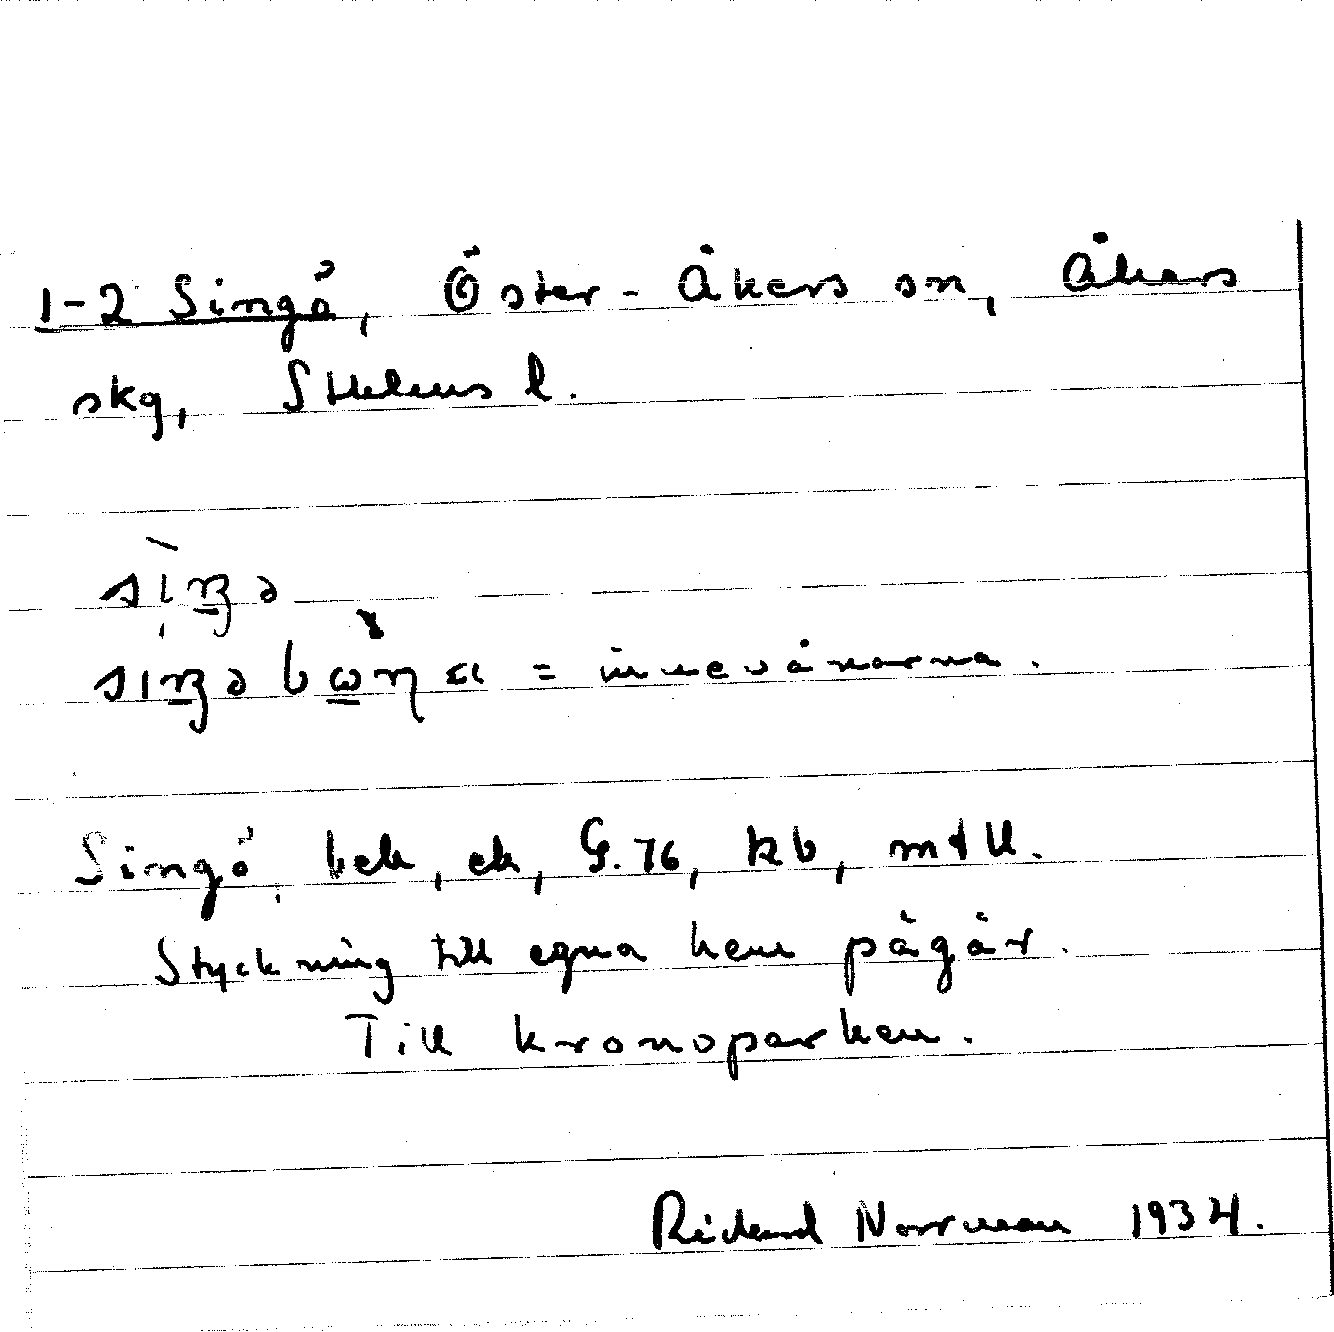 1-2 Singö, Öster-Åkers sn, Åkers
skg, Sthlms l.
= innevånarna.
Singö, bek, ek, G.76, kb, mtll.
Styckning till egna hem pågår.
Till kronoparken.
Rickard Norrman 1934.